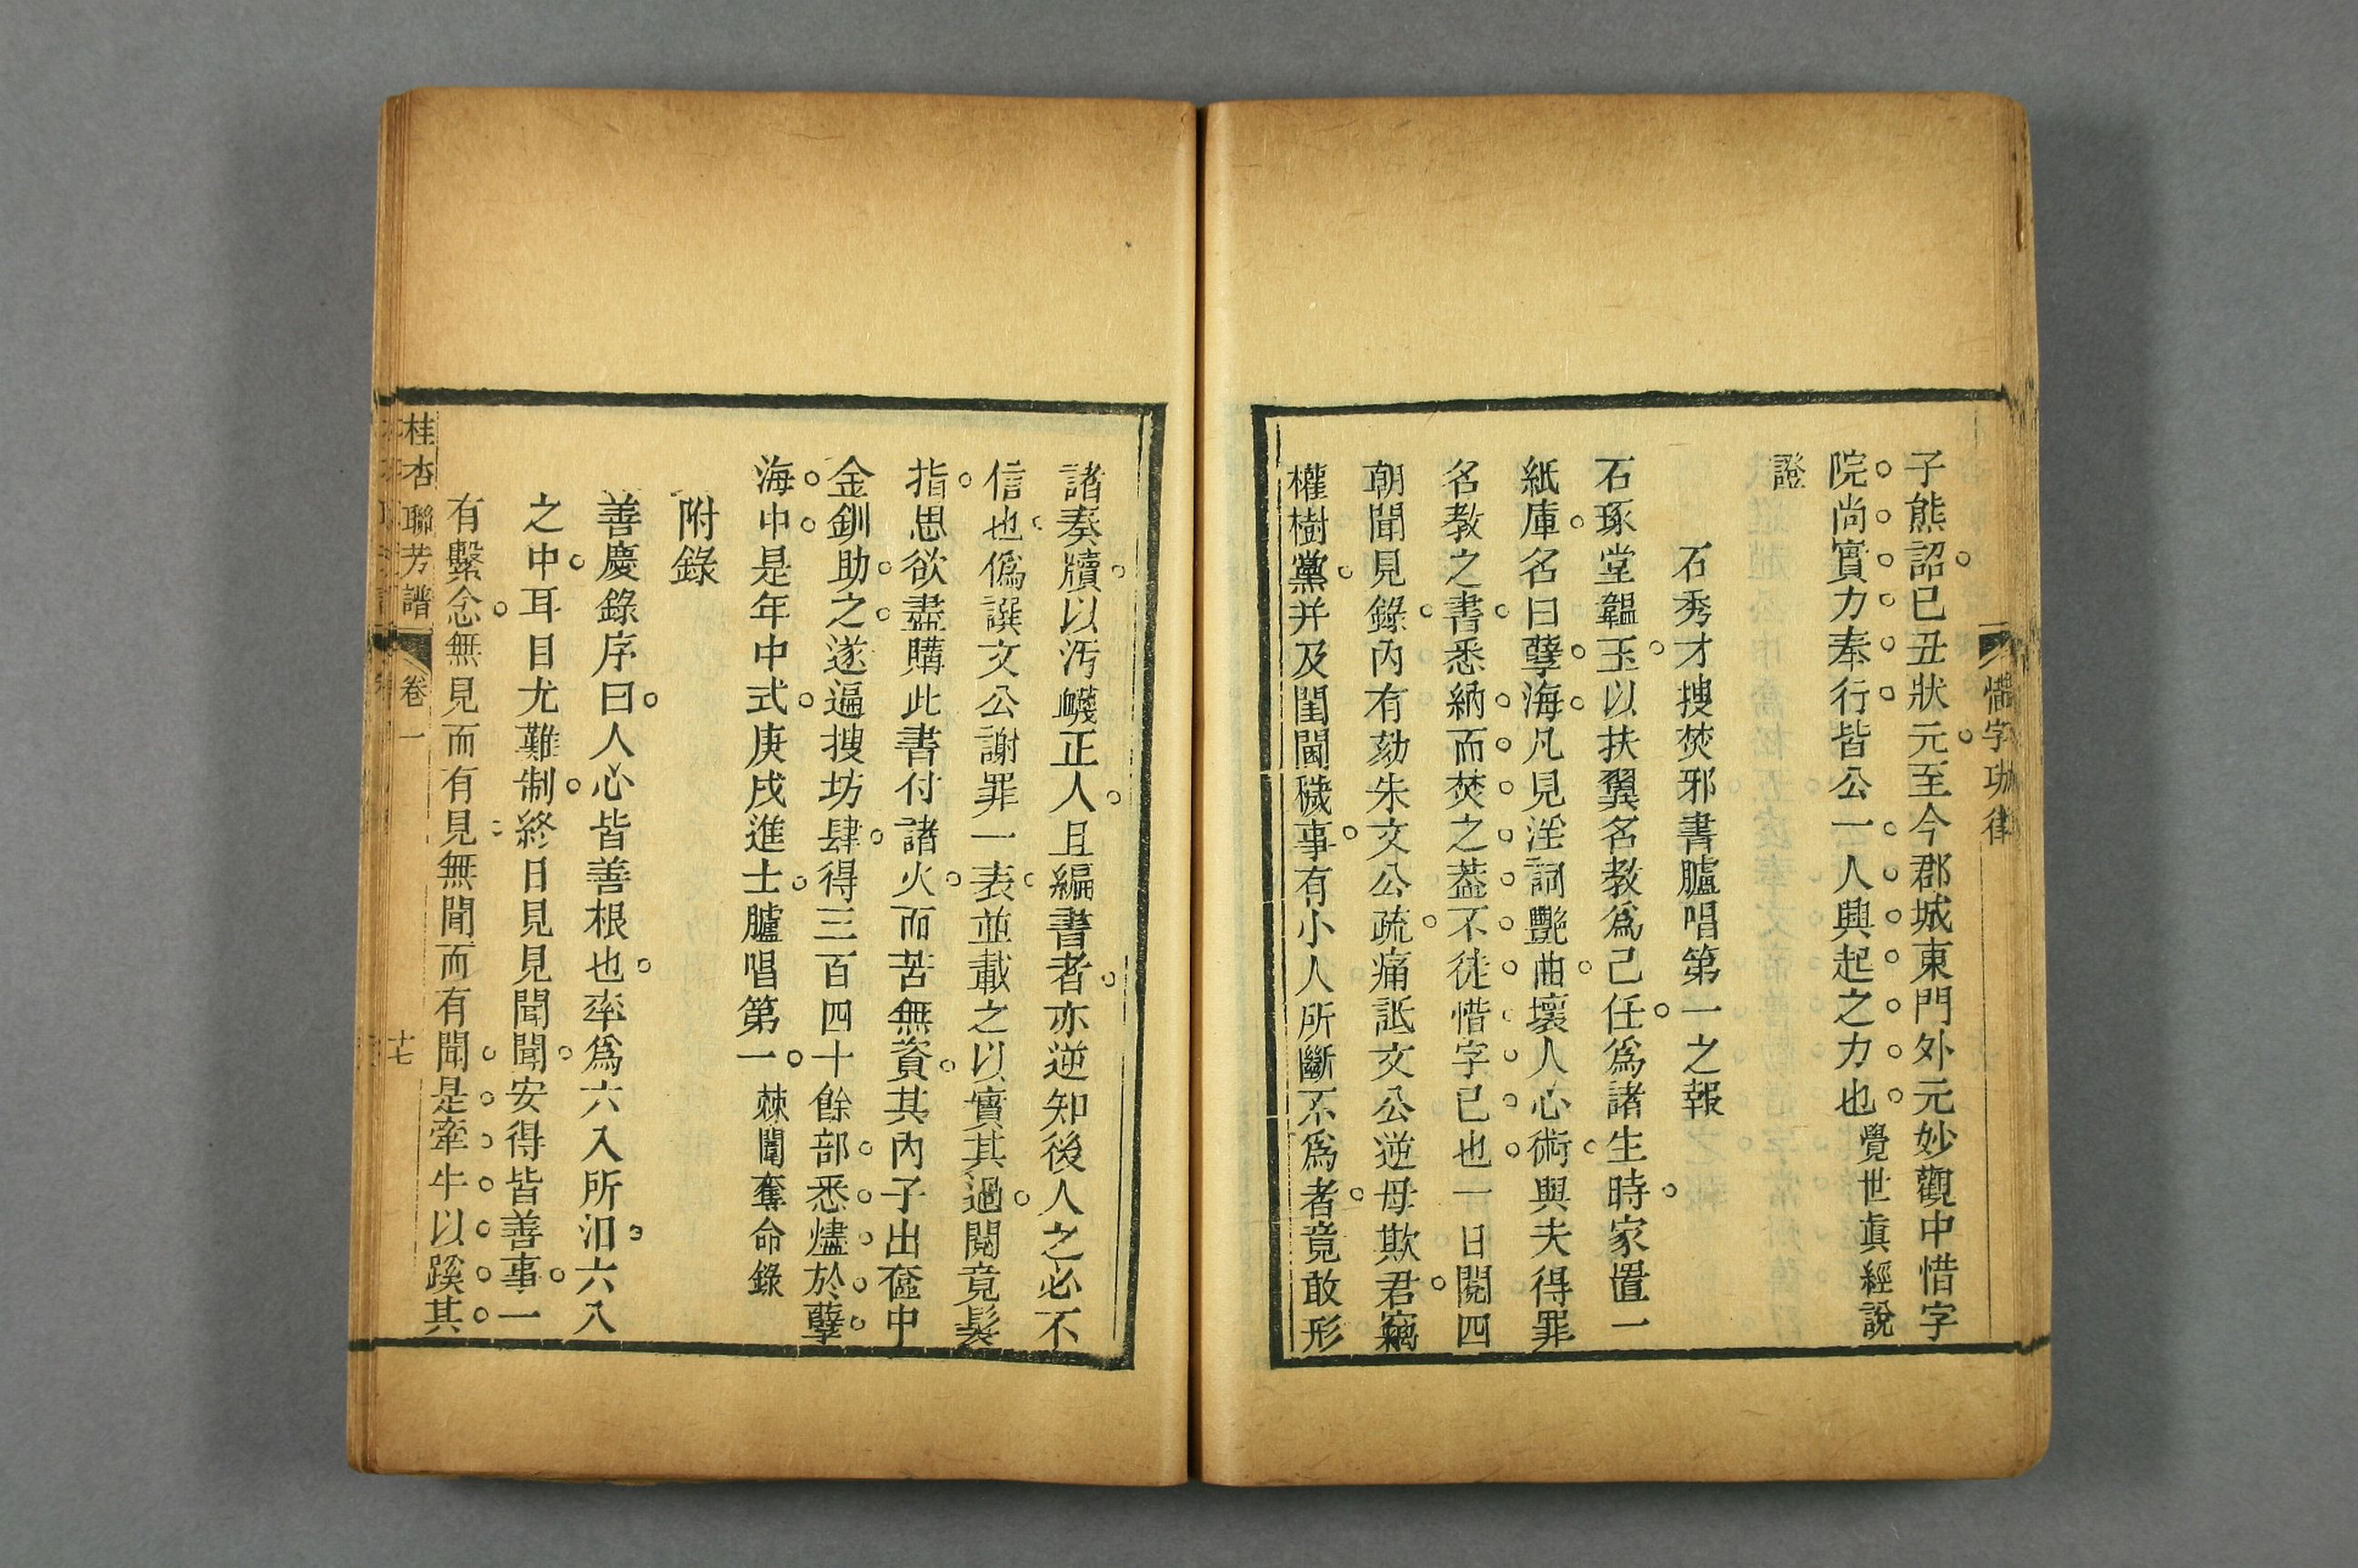 惜字功律
子熊詔已丑狀元至今郡城東門外元妙觀中惜字
院尚實力奉行皆公一人興起之力也覺世眞經說
證
石秀才搜焚邪書臚唱第一之報
石琢堂韞玉以扶翼名教爲己任爲諸生時家置一
紙庫名曰孽海凡見淫詞艷曲壞人心術與夫得罪
名教之書悉納而焚之葢不徒惜字已也一日閱四
朝聞見錄內有劾朱文公疏痛詆文公逆母欺君竊
權樹黨并及閨閫穢事有小人所斷不爲者竟敢形
諸奏牘以汚衊正人且編書者亦逆知後人之必不
信也僞譔文公謝罪一表並載之以實其過閱竟髮
指思欲盡購此書付諸火而苦無資其內子出奩中
金釧助之遂遍搜坊肆得三百四十餘部悉燼於孽
海中是年中式庚戌進士臚唱第一棘闈奪命錄
附錄
善慶錄序曰人心皆善根也率爲六入所汨六入
之中耳目尤難制終日見見聞聞安得皆善事一
有繫念無見而有見無聞而有聞是牽牛以蹊其
桂杏聯芳譜 卷一 十七